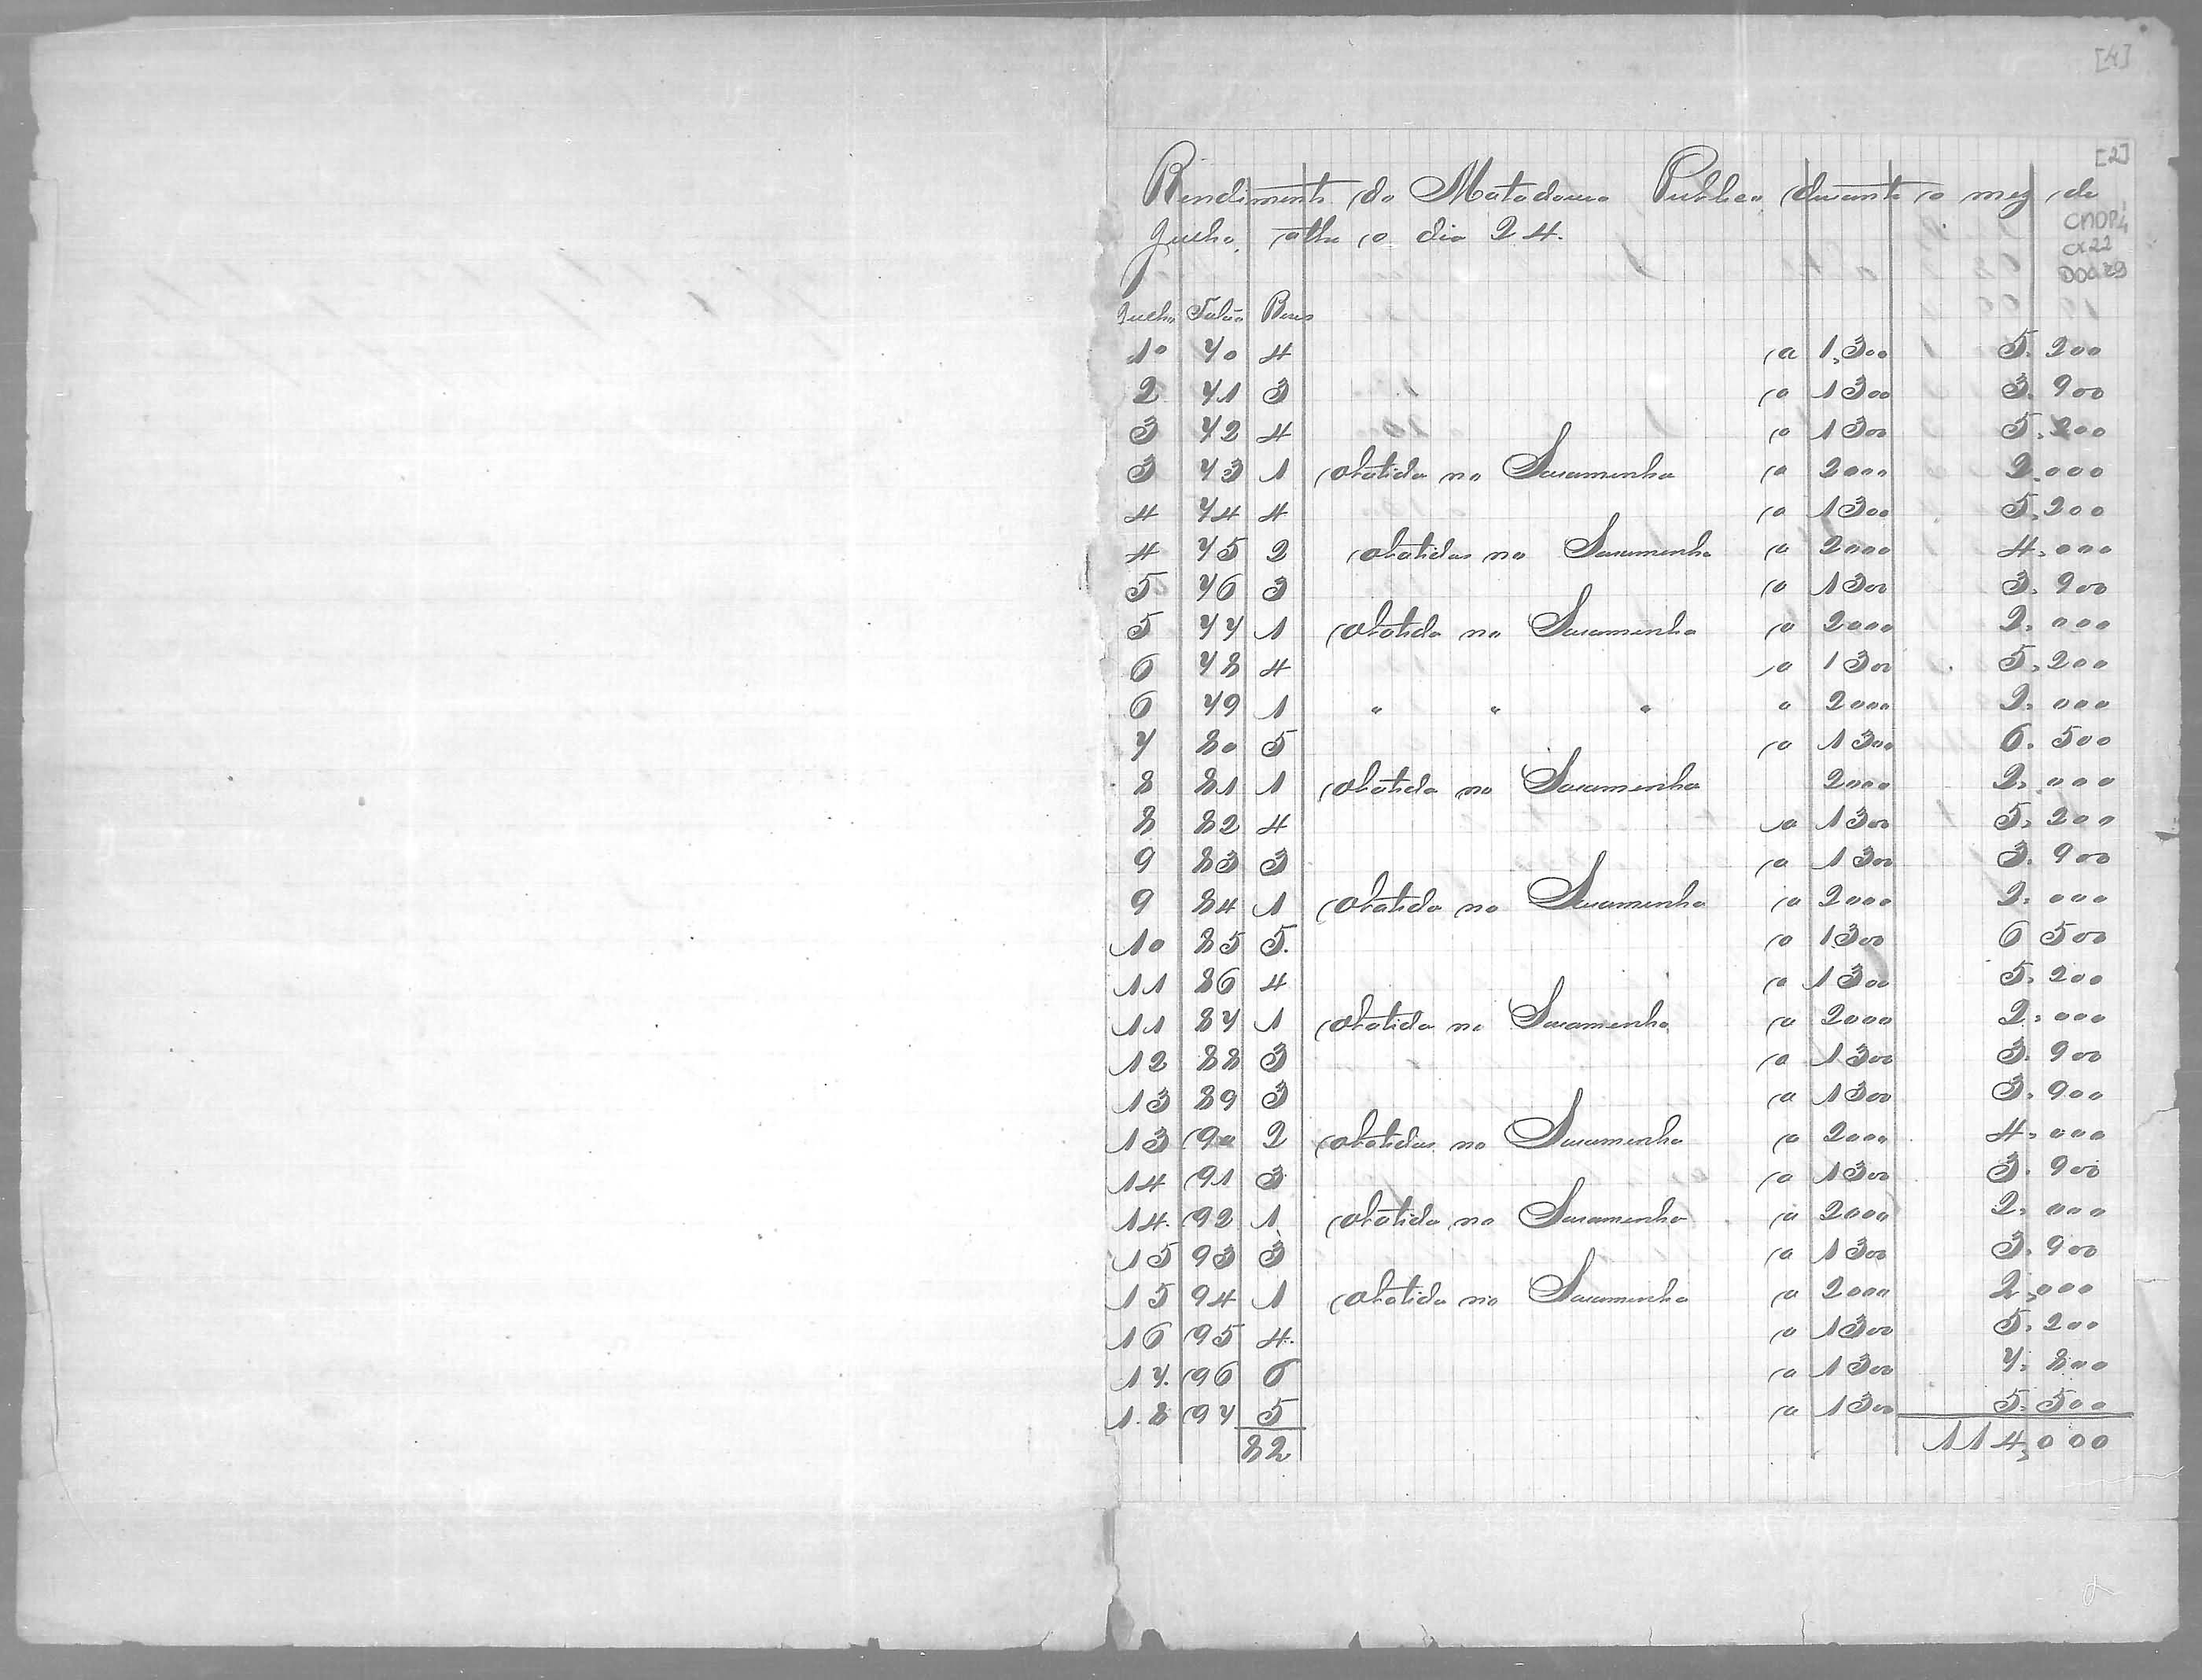 [4]
[2]
Rendimento do Matadouro Publico durante o mez de
Julho athe o dia 24.
CMOP,
CX22
DOC 29
Julho Talão Bois
1º 70 4 a 1,300 5.200
2 71 3 a 1300 3.900
3 72 4 a 1300 5.200
3 73 1 abatida na Saramenha a 2000 2.000
4 74 4 a 1300 5,200
4 75 2 abatidas na Saramenha a 2000 4,000
5 76 3 a 1300 3.900
5 77 1 abatida na Saramenha a 2000 2,000
6 78 4 a 1300 5,200
6 79 1 " " " a 2000 2,000
7 80 5 a 1300 6.500
8 81 1 abatida na Saramenha 2000 2,000
8 82 4 a 1300 5,200
9 83 3 a 1300 3.900
9 84 1 abatida na Saramenha a 2000 2,000
10 85 5. a 1300 6 500
11 86 4 a 1300 5,200
11 87 1 abatida na Saramenha a 2000 2,000
12 88 3 a 1300 3.900
13 89 3 a 1300 3,900
13 90 2 abatidas na Saramenha a 2000 4,000
14 91 3 a 1300 3.900
14. 92 1 abatida na Saramenha a 2000 2,000
15 93 3 a 1300 3.900
15 94 1 abatida na Saramenha a 2000 2,000
16 95 4. a 1300 5,200
17. 96 6 a 1300 7,800
1.8 97 5 a 1300 5.500
82 114,000